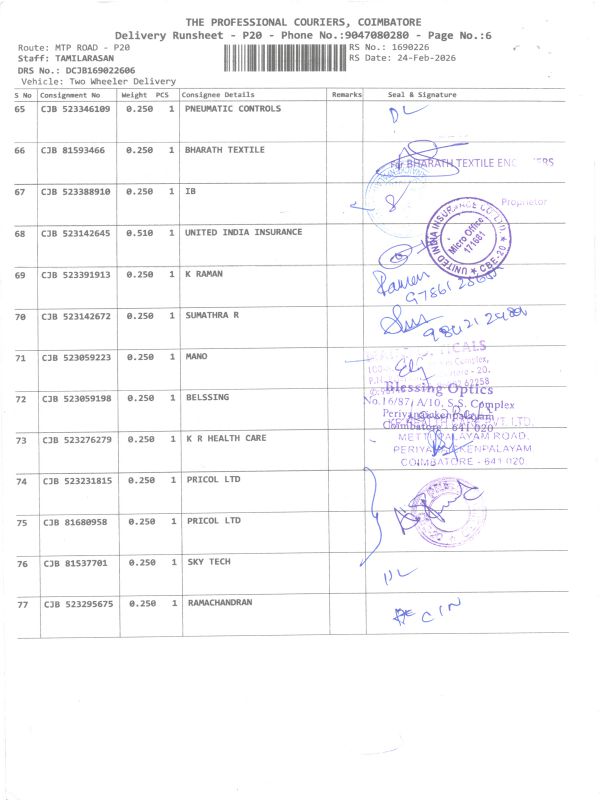 THE PROFESSIONAL COURIERS, COIMBATORE
Delivery Runsheet - P20 - Phone No.:9047080280 - Page No.:6
Route: MTP ROAD - P20
RS No.: 1690226
Staff: TAMILARASAN
RS Date: 24-Feb-2026
DRS No.: DCJB169022606
Vehicle: Two Wheeler Delivery
S No Consignment No Weight PCS Consignee Details Remarks Seal & Signature
65 CJB 523346109 0.250 1 PNEUMATIC CONTROLS DL
66 CJB 81593466 0.250 1 BHARATH TEXTILE
For BHARATH TEXTILE
67 CJB 523388910 0.250 1 IB
Proprietor
68 CJB 523142645 0.510 1 UNITED INDIA INSURANCE
UNITED INDIA INSURANCE CO LTD. ★ CBE-20 ★
Micro Office
171681
69 CJB 523391913 0.250 1 K RAMAN
Raman
70 CJB 523142672 0.250 1 SUMATHRA R
71 CJB 523059223 0.250 1 MANO
72 CJB 523059198 0.250 1 BELSSING
Blessing Optics
No.16/87, A/10, S.S. Complex
Periyanaickenpalayam
Coimbatore - 641 020
73 CJB 523276279 0.250 1 K R HEALTH CARE
METTUPALAYAM ROAD,
PERIYANAICKENPALAYAM
COIMBATORE - 641 020
74 CJB 523231815 0.250 1 PRICOL LTD
75 CJB 81680958 0.250 1 PRICOL LTD
76 CJB 81537701 0.250 1 SKY TECH DL
77 CJB 523295675 0.250 1 RAMACHANDRAN